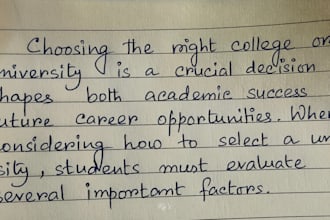 Choosing the right college or
niversity is a crucial decision
hapes both academic success
uture career opportunities. When
onsidering how to select a un
sity, students must evaluate
several important factors.